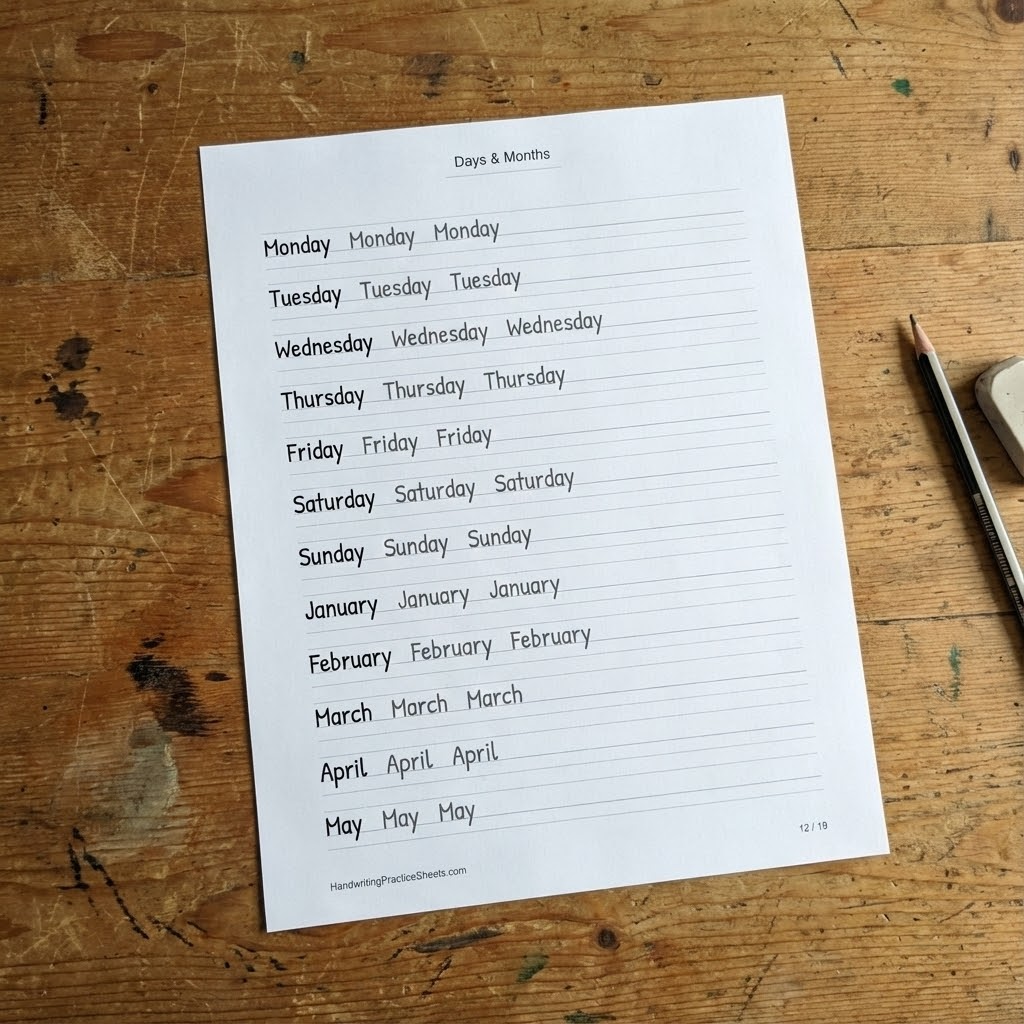 Days & Months
Monday Monday Monday
Tuesday Tuesday Tuesday
Wednesday Wednesday Wednesday
Thursday Thursday Thursday
Friday Friday Friday
Saturday Saturday Saturday
Sunday Sunday Sunday
January January January
February February February
March March March
April April April
May May May
12 / 18
HandwritingPracticeSheets.com